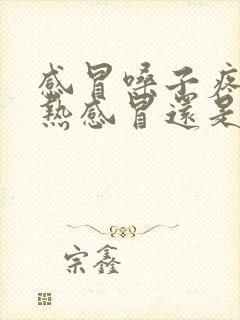 感冒嗓子疼
熱感冒還是
宗鑫